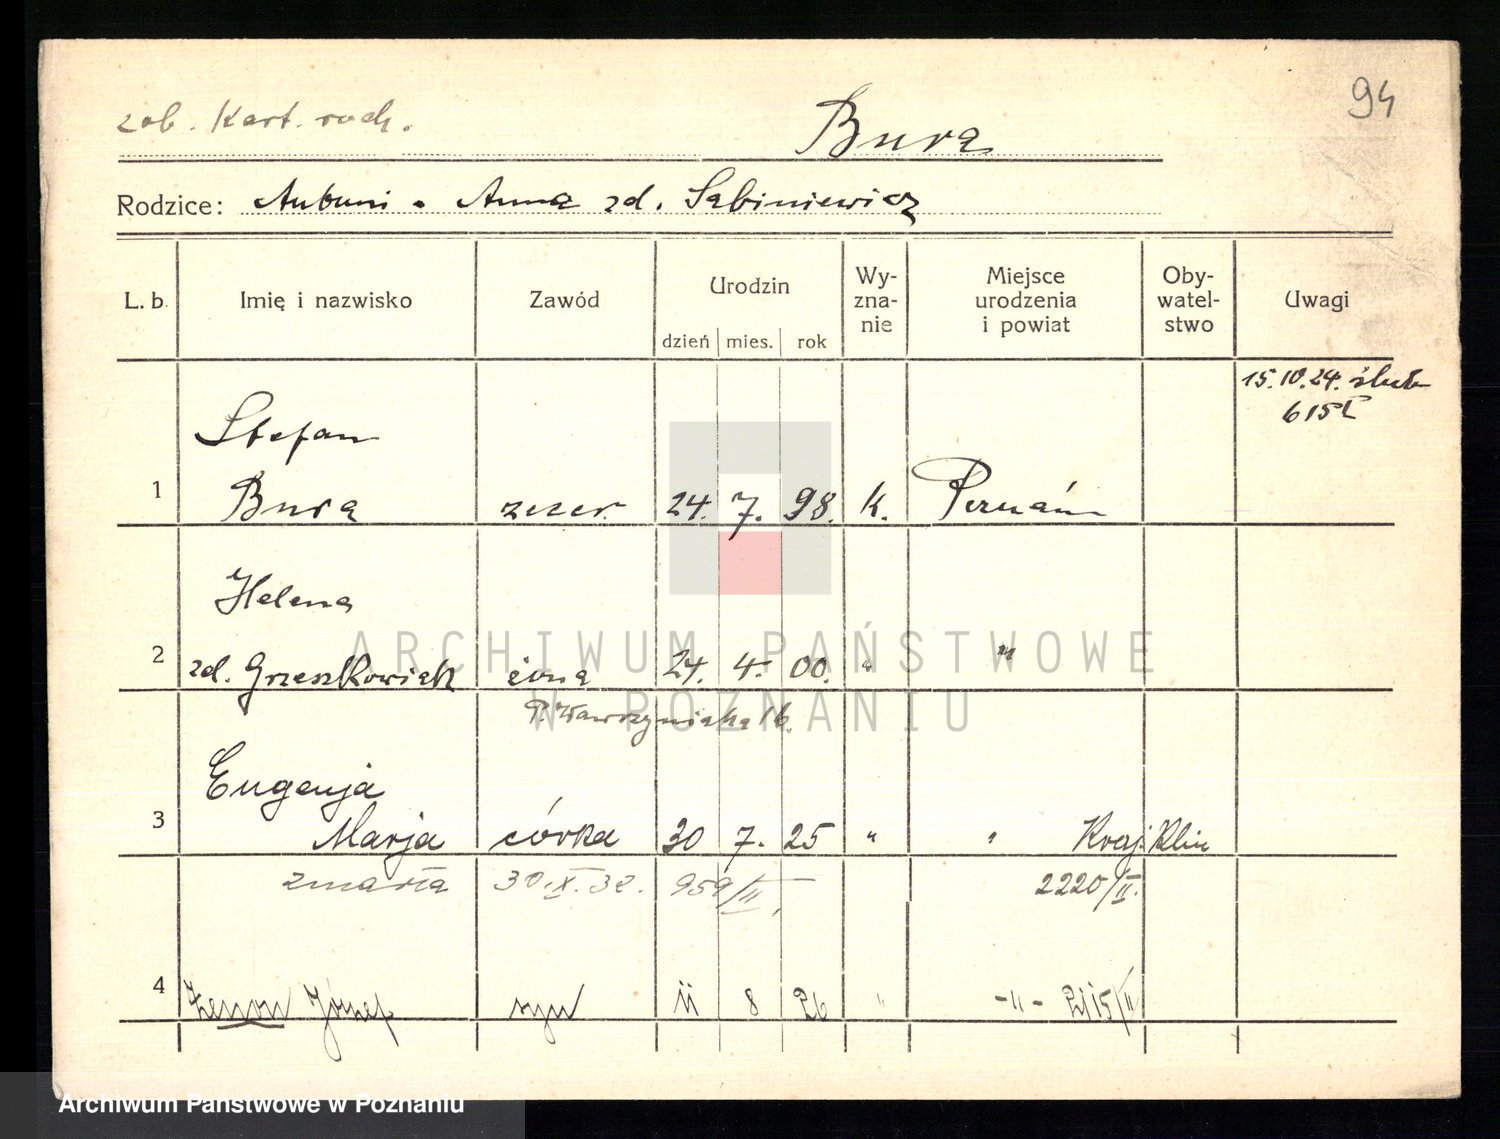 94
zob. Kart. ruch.
Bura
Rodzice: Antoni . Anna zd. Sabiniewicz
L. b. Imię i nazwisko Zawód Urodzin dzień mies. rok Wy-zna-nie Miejsce urodzenia i powiat Oby-watel-stwo Uwagi
15.10.24. ślub
615
Stefan
1 Bura zecer. 24. 7. 98. k. Poznań
Helena
2 zd. Grzeszkowiak żona 24. 4. 00. " "
P. Wawrzyniaka 16.
Eugenja
3 Marja córka 30 7. 25 " "
zmarła 30.X.32. 959/II 2220/II.
4 Zenon Józef syn 11 8 26 " -"- 2115/II
ARCHIWUM PAŃSTWOWE
W POZNANIU
Archiwum Państwowe w Poznaniu